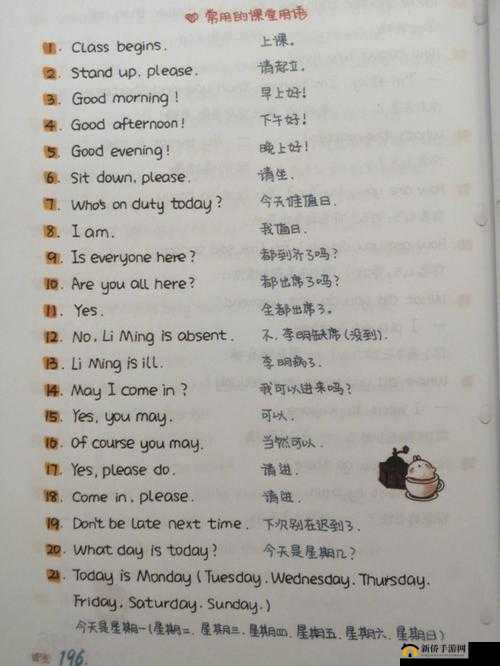 常用的课堂用语
1. Class begins. 上课.
2. Stand up, please. 请起立.
3. Good morning! 早上好!
4. Good afternoon! 下午好!
5. Good evening! 晚上好!
6. Sit down, please. 请坐.
7. Who's on duty today? 今天谁值日.
8. I am. 我值日.
9. Is everyone here? 都到齐了吗?
10. Are you all here? 都出席了吗?
11. Yes. 全都出席了.
12. No, Li Ming is absent. 不, 李明缺席(没到).
13. Li Ming is ill. 李明病了.
14. May I come in? 我可以进来吗?
15. Yes, you may. 可以.
16. Of course you may. 当然可以.
17. Yes, please do. 请进.
18. Come in, please. 请进.
19. Don't be late next time. 下次别在迟到了.
20. What day is today? 今天是星期几?
21. Today is Monday (Tuesday. Wednesday. Thursday.
Friday. Saturday. Sunday.)
今天是星期一(星期二、星期三、星期四、星期五、星期六、星期日)
196.
新侨手游网